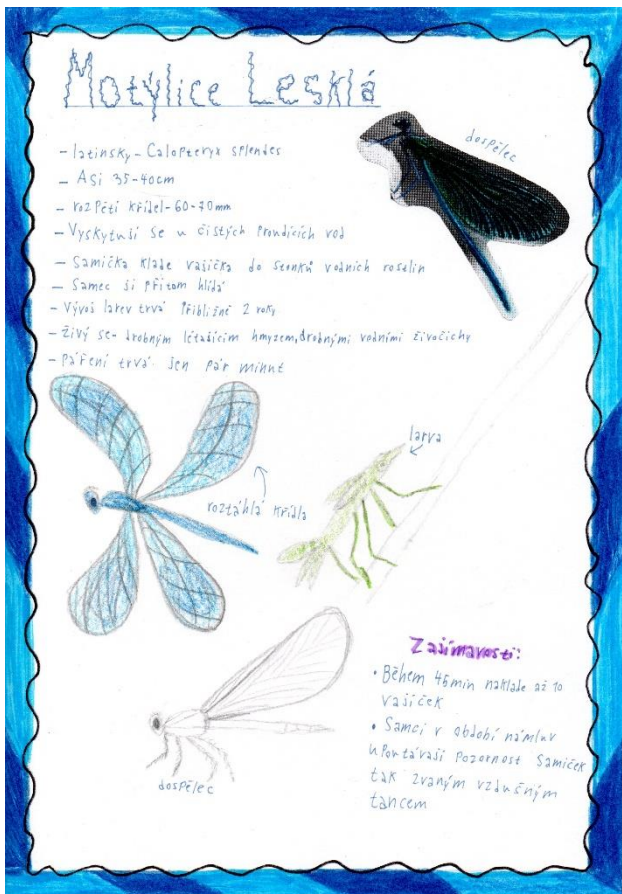 Motýlice Lesklá
dospělec
- latinsky - Calopteryx splendes
- Asi 35-40cm
- rozpětí křídel - 60-70mm
- Vyskytují se u čistých proudících vod
- Samička klade vajíčka do stonků vodních rostlin
- Samec ji přitom hlídá
- Vývoj larev trvá přibližně 2 roky
- živý se - drobným létajícím hmyzem, drobnými vodními živočichy
- páření trvá jen pár minut
larva
roztáhlá křídla
Zajímavosti:
• Během 45min naklade až 10
vajíček
• Samci v období námluv
upoutávají pozornost samiček
tak zvaným vzdušným
tancem
dospělec